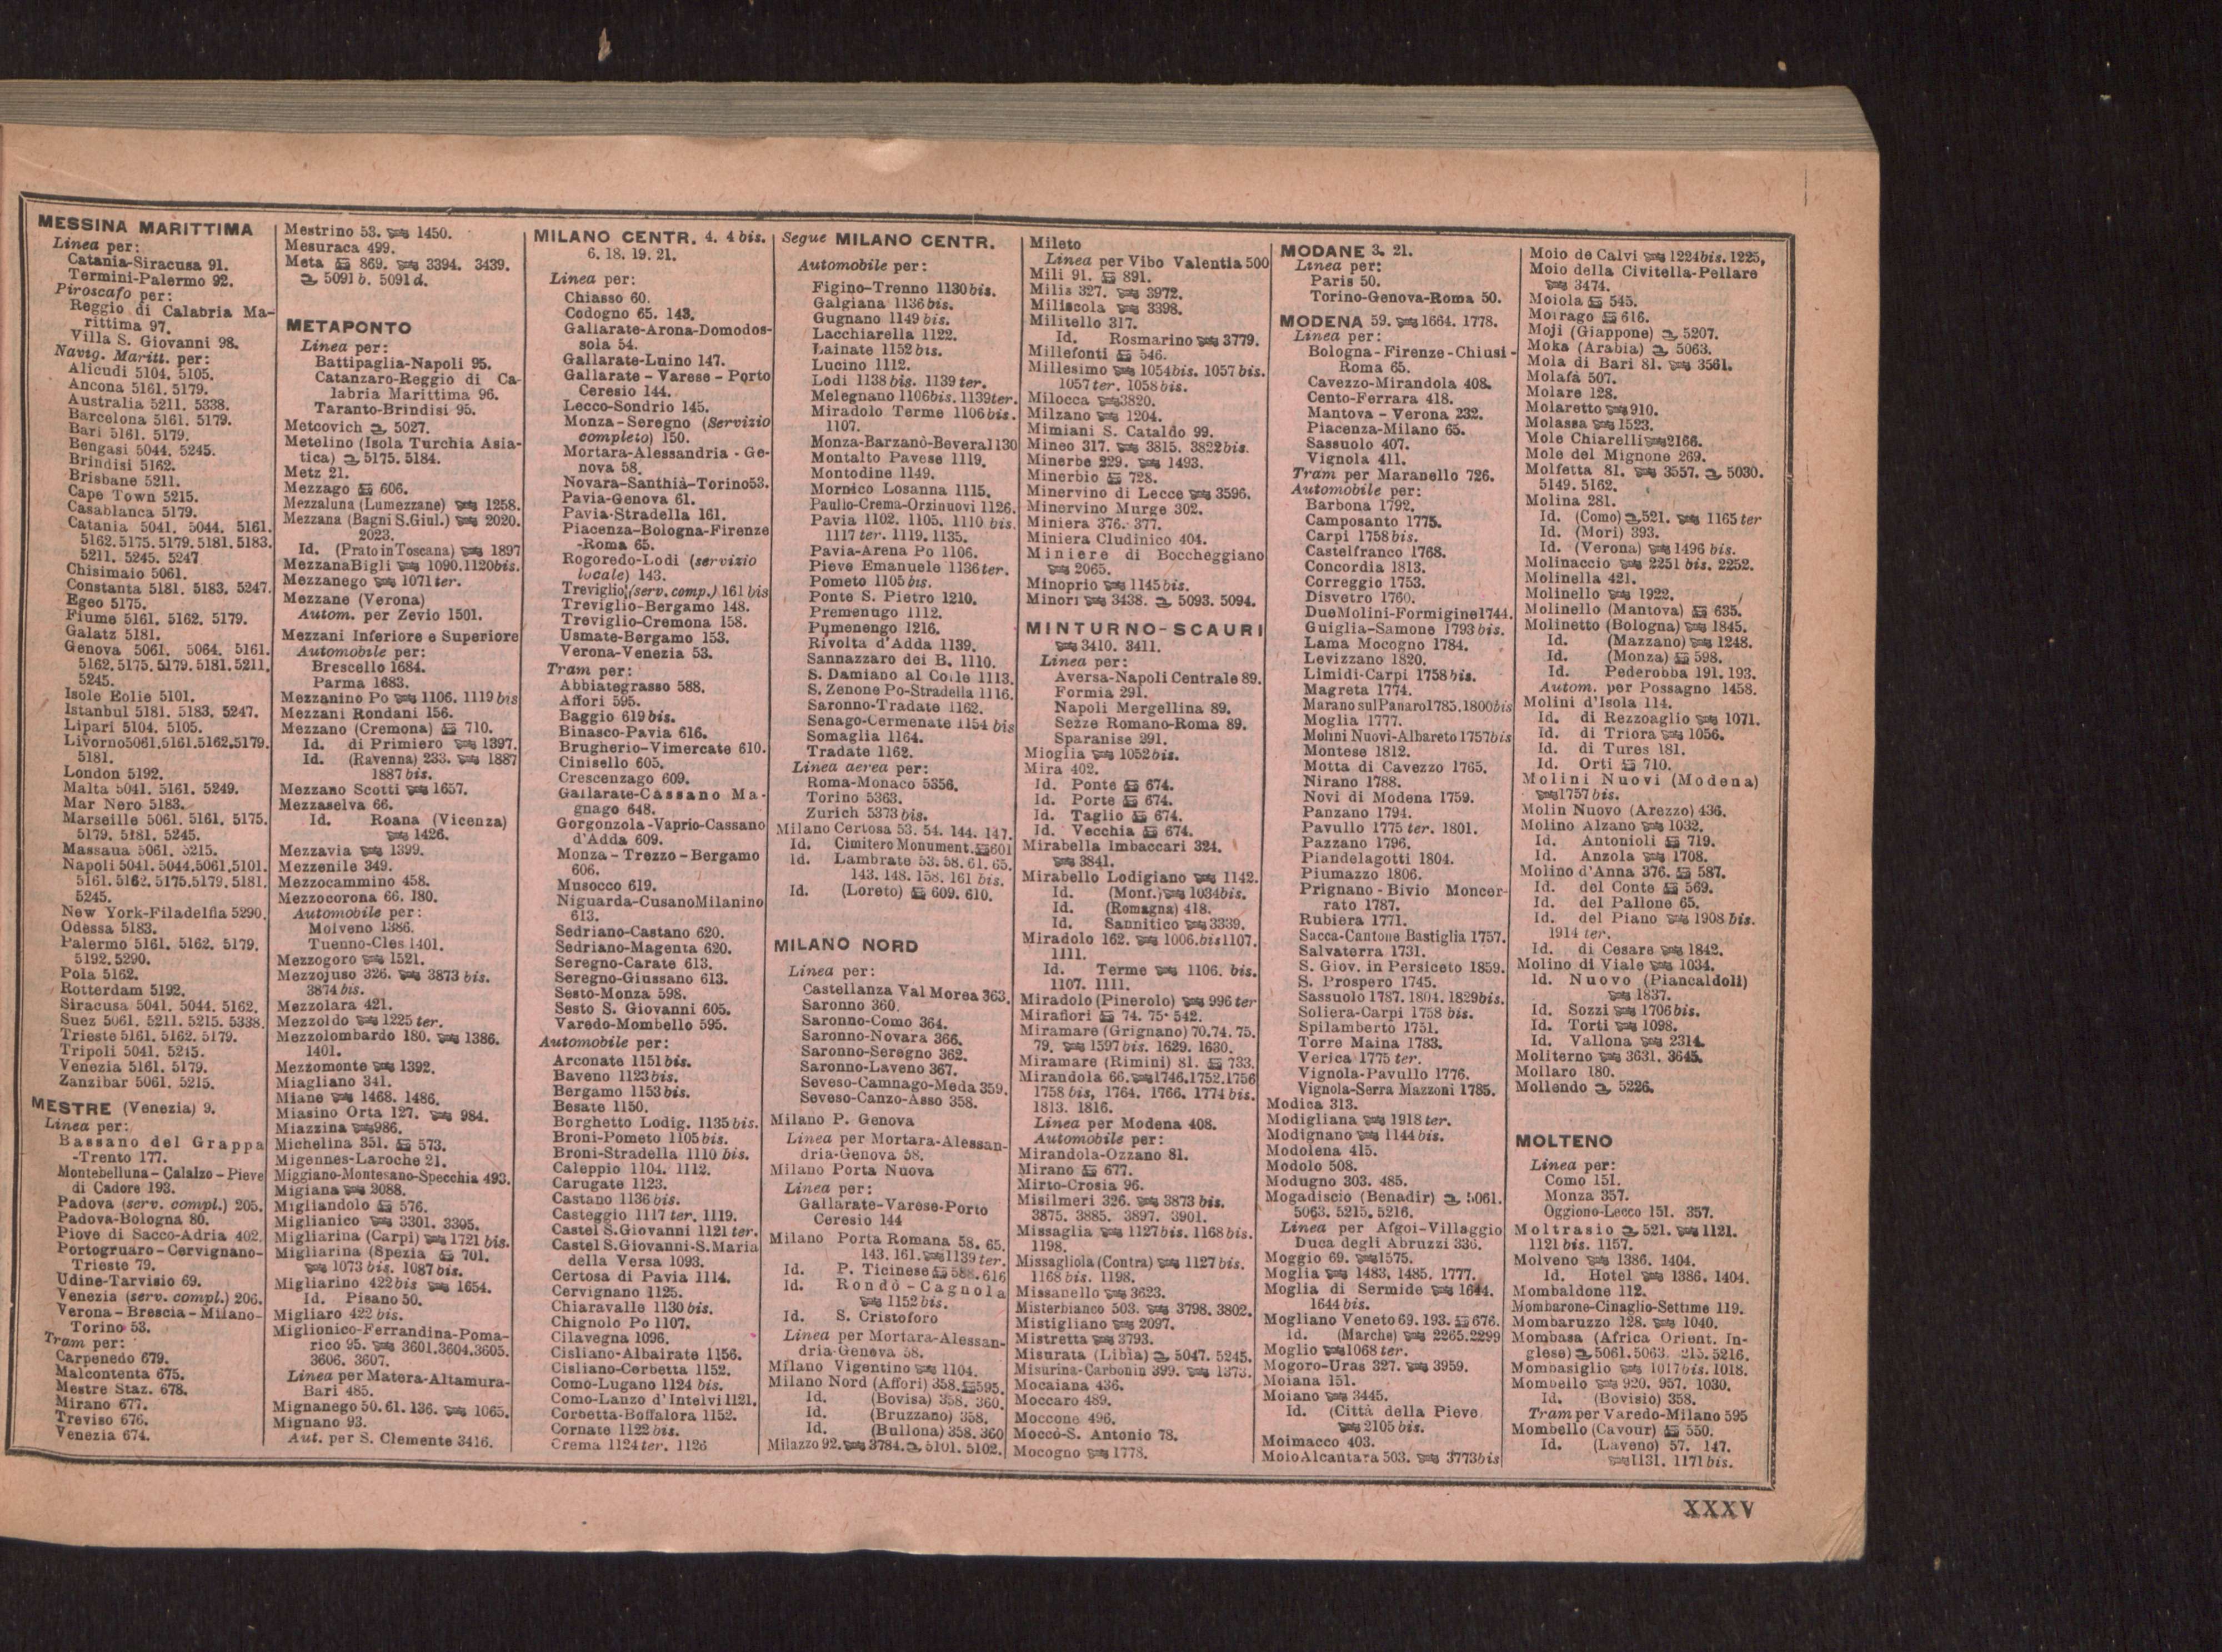 MESSINA MARITTIMA
Linea per:
Catania-Siracusa 91.
Termini-Palermo 92.
Piroscafo per:
Reggio di Calabria Ma-
rittima 97.
Villa S. Giovanni 98.
Navig. Maritt. per:
Alicudi 5104. 5105.
Ancona 5161. 5179.
Australia 5211. 5338.
Barcelona 5161. 5179.
Bari 5161. 5179.
Bengasi 5044. 5245.
Brindisi 5162.
Brisbane 5211.
Cape Town 5215.
Casablanca 5179.
Catania 5041. 5044. 5161.
5162. 5175. 5179. 5181. 5183.
5211. 5245. 5247
Chisimaio 5061.
Constanta 5181. 5183. 5247.
Egeo 5175.
Fiume 5161. 5162. 5179.
Galatz 5181.
Genova 5061. 5064. 5161.
5162. 5175. 5179. 5181. 5211.
5245.
Isole Eolie 5101.
Istanbul 5181. 5183. 5247.
Lipari 5104. 5105.
Livorno 5061. 5161. 5162. 5179.
5181.
London 5192.
Malta 5041. 5161. 5249.
Mar Nero 5183.
Marseille 5061. 5161. 5175.
5179. 5181. 5245.
Massaua 5061. 5215.
Napoli 5041. 5044. 5061. 5101.
5161. 5162. 5175. 5179. 5181.
5245.
New York-Filadelfia 5290.
Odessa 5183.
Palermo 5161. 5162. 5179.
5192. 5290.
Pola 5162.
Rotterdam 5192.
Siracusa 5041. 5044. 5162.
Suez 5061. 5211. 5215. 5338.
Trieste 5161. 5162. 5179.
Tripoli 5041. 5245.
Venezia 5161. 5179.
Zanzibar 5061. 5215.
MESTRE (Venezia) 9.
Linea per:
Bassano del Grappa
-Trento 177.
Montebelluna-Calalzo-Pieve
di Cadore 193.
Padova (serv. compl.) 205.
Padova-Bologna 80.
Piove di Sacco-Adria 402.
Portogruaro-Cervignano-
Trieste 79.
Udine-Tarvisio 69.
Venezia (serv. compl.) 206.
Verona-Brescia-Milano-
Torino 53.
Tram per:
Carpenedo 679.
Malcontenta 675.
Mestre Staz. 678.
Mirano 677.
Treviso 676.
Venezia 674.
Mestrino 53. 1450.
Mesuraca 499.
Meta 869. 3394. 3439.
5091 b. 5091 d.
METAPONTO
Linea per:
Battipaglia-Napoli 95.
Catanzaro-Reggio di Ca-
labria Marittima 96.
Taranto-Brindisi 95.
Metcovich 5027.
Metelino (Isola Turchia Asia-
tica) 5175. 5184.
Metz 21.
Mezzago 606.
Mezzaluna (Lumezzane) 1258.
Mezzana (Bagni S.Giul.) 2020.
2023.
Id. (Prato in Toscana) 1897
Mezzana Bigli 1090. 1120bis.
Mezzanego 1071 ter.
Mezzane (Verona)
Autom. per Zevio 1501.
Mezzani Inferiore e Superiore
Automobile per:
Brescello 1684.
Parma 1683.
Mezzanino Po 1106. 1119 bis
Mezzani Rondani 156.
Mezzano (Cremona) 710.
Id. di Primiero 1397.
Id. (Ravenna) 233. 1887
1887 bis.
Mezzano Scotti 1657.
Mezzaselva 66.
Id. Roana (Vicenza)
1426.
Mezzavia 1399.
Mezzenile 349.
Mezzocammino 458.
Mezzocorona 66. 180.
Automobile per:
Molveno 1386.
Tuenno-Cles 1401.
Mezzogoro 1521.
Mezzojuso 326. 3873 bis.
3874 bis.
Mezzolara 421.
Mezzoldo 1225 ter.
Mezzolombardo 180. 1386.
1401.
Mezzomonte 1392.
Miagliano 341.
Miane 1468. 1486.
Miasino Orta 127. 984.
Miazzina 986.
Michelina 351. 573.
Migennes-Laroche 21.
Miggiano-Montesano-Specchia 493.
Migiana 2088.
Migliandolo 576.
Miglianico 3301. 3305.
Migliarina (Carpi) 1721 bis.
Migliarina (Spezia 701.
1073 bis. 1087 bis.
Migliarino 422 bis 1654.
Id. Pisano 50.
Migliaro 422 bis.
Miglionico-Ferrandina-Poma-
rico 95. 3601. 3604. 3605.
3606. 3607.
Linea per Matera-Altamura-
Bari 485.
Mignanego 50. 61. 136. 1065.
Mignano 93.
Aut. per S. Clemente 3416.
MILANO CENTR. 4. 4 bis.
6. 18. 19. 21.
Linea per:
Chiasso 60.
Codogno 65. 143.
Gallarate-Arona-Domodos-
sola 54.
Gallarate-Luino 147.
Gallarate-Varese-Porto
Ceresio 144.
Lecco-Sondrio 145.
Monza-Seregno (Servizio
completo) 150.
Mortara-Alessandria-Ge-
nova 58.
Novara-Santhià-Torino 53.
Pavia-Genova 61.
Pavia-Stradella 161.
Piacenza-Bologna-Firenze
-Roma 65.
Rogoredo-Lodi (servizio
locale) 143.
Treviglio (serv. comp.) 161 bis
Treviglio-Bergamo 148.
Treviglio-Cremona 158.
Usmate-Bergamo 153.
Verona-Venezia 53.
Tram per:
Abbiategrasso 588.
Affori 595.
Baggio 619 bis.
Binasco-Pavia 616.
Brugherio-Vimercate 610.
Cinisello 605.
Crescenzago 609.
Gallarate-Cassano Ma-
gnago 648.
Gorgonzola-Vaprio-Cassano
d'Adda 609.
Monza-Trezzo-Bergamo
606.
Musocco 619.
Niguarda-Cusano Milanino
613.
Sedriano-Castano 620.
Sedriano-Magenta 620.
Seregno-Carate 613.
Seregno-Giussano 613.
Sesto-Monza 598.
Sesto S. Giovanni 605.
Varedo-Mombello 595.
Automobile per:
Arconate 1151 bis.
Baveno 1123 bis.
Bergamo 1153 bis.
Besate 1150.
Borghetto Lodig. 1135 bis.
Broni-Pometo 1105 bis.
Broni-Stradella 1110 bis.
Caleppio 1104. 1112.
Carugate 1123.
Castano 1136 bis.
Casteggio 1117 ter. 1119.
Castel S.Giovanni 1121 ter.
Castel S.Giovanni-S.Maria
della Versa 1093.
Certosa di Pavia 1114.
Cervignano 1125.
Chiaravalle 1130 bis.
Chignolo Po 1107.
Cilavegna 1096.
Cisliano-Albairate 1156.
Cisliano-Corbetta 1152.
Como-Lugano 1124 bis.
Como-Lanzo d'Intelvi 1121.
Corbetta-Boffalora 1152.
Cornate 1122 bis.
Crema 1124 ter. 1126
Segue MILANO CENTR.
Automobile per:
Figino-Trenno 1130 bis.
Galgiana 1136 bis.
Gugnano 1149 bis.
Lacchiarella 1122.
Lainate 1152 bis.
Lucino 1112.
Lodi 1138 bis. 1139 ter.
Melegnano 1106bis. 1139ter.
Miradolo Terme 1106 bis.
1107.
Monza-Barzanò-Bevera 1130
Montalto Pavese 1119.
Montodine 1149.
Mornico Losanna 1115.
Paullo-Crema-Orzinuovi 1126.
Pavia 1102. 1105. 1110 bis.
1117 ter. 1119. 1135.
Pavia-Arena Po 1106.
Pieve Emanuele 1136 ter.
Pometo 1105 bis.
Ponte S. Pietro 1210.
Premenugo 1112.
Pumenengo 1216.
Rivolta d'Adda 1139.
Sannazzaro dei B. 1110.
S. Damiano al Colle 1113.
S. Zenone Po-Stradella 1116.
Saronno-Tradate 1162.
Senago-Cermenate 1154 bis
Somaglia 1164.
Tradate 1162.
Linea aerea per:
Roma-Monaco 5356.
Torino 5363.
Zurich 5373 bis.
Milano Certosa 53. 54. 144. 147.
Id. Cimitero Monument. 601
Id. Lambrate 53. 58. 61. 65.
143. 148. 158. 161 bis.
Id. (Loreto) 609. 610.
MILANO NORD
Linea per:
Castellanza Val Morea 363.
Saronno 360.
Saronno-Como 364.
Saronno-Novara 366.
Saronno-Seregno 362.
Saronno-Laveno 367.
Seveso-Camnago-Meda 359.
Seveso-Canzo-Asso 358.
Milano P. Genova
Linea per Mortara-Alessan-
dria-Genova 58.
Milano Porta Nuova
Linea per:
Gallarate-Varese-Porto
Ceresio 144
Milano Porta Romana 58. 65.
143. 161. 1139 ter.
Id. P. Ticinese 588. 616
Id. Rondò-Cagnola
1152 bis.
Id. S. Cristoforo
Linea per Mortara-Alessan-
dria-Genova 58.
Milano Vigentino 1104.
Milano Nord (Affori) 358. 595.
Id. (Bovisa) 358. 360.
Id. (Bruzzano) 358.
Id. (Bullona) 358. 360
Milazzo 92. 3784. 5101. 5102.
Mileto
Linea per Vibo Valentia 500
Mili 91. 891.
Milis 327. 3972.
Miliscola 3398.
Militello 317.
Id. Rosmarino 3779.
Millefonti 546.
Millesimo 1054bis. 1057 bis.
1057 ter. 1058 bis.
Milocca 3820.
Milzano 1204.
Mimiani S. Cataldo 99.
Mineo 317. 3815. 3822 bis.
Minerbe 229. 1493.
Minerbio 728.
Minervino di Lecce 3596.
Minervino Murge 302.
Miniera 376. 377.
Miniera Cludinico 404.
Miniere di Boccheggiano
2065.
Minoprio 1145 bis.
Minori 3438. 5093. 5094.
MINTURNO-SCAURI
3410. 3411.
Linea per:
Aversa-Napoli Centrale 89.
Formia 291.
Napoli Mergellina 89.
Sezze Romano-Roma 89.
Sparanise 291.
Mioglia 1052 bis.
Mira 402.
Id. Ponte 674.
Id. Porte 674.
Id. Taglio 674.
Id. Vecchia 674.
Mirabella Imbaccari 324.
3841.
Mirabello Lodigiano 1142.
Id. (Monf.) 1034bis.
Id. (Romagna) 418.
Id. Sannitico 3339.
Miradolo 162. 1006.bis 1107.
1111.
Id. Terme 1106. bis.
1107. 1111.
Miradolo (Pinerolo) 996 ter
Mirafiori 74. 75. 542.
Miramare (Grignano) 70. 74. 75.
79. 1597 bis. 1629. 1630.
Miramare (Rimini) 81. 733.
Mirandola 66. 1746. 1752. 1756
1758 bis, 1764. 1766. 1774 bis.
1813. 1816.
Linea per Modena 408.
Automobile per:
Mirandola-Ozzano 81.
Mirano 677.
Mirto-Crosia 96.
Misilmeri 326. 3873 bis.
3875. 3885. 3897. 3901.
Missaglia 1127bis. 1168 bis.
1198.
Missagliola (Contra) 1127 bis.
1168 bis. 1198.
Missanello 3623.
Misterbianco 503. 3798. 3802.
Mistigliano 2097.
Mistretta 3793.
Misurata (Libia) 5047. 5245.
Misurina-Carbonin 399. 1373.
Mocaiana 436.
Moccaro 489.
Moccone 496.
Moccò-S. Antonio 78.
Mocogno 1778.
MODANE 3. 21.
Linea per:
Paris 50.
Torino-Genova-Roma 50.
MODENA 59. 1664. 1778.
Linea per:
Bologna-Firenze-Chiusi-
Roma 65.
Cavezzo-Mirandola 408.
Cento-Ferrara 418.
Mantova-Verona 232.
Piacenza-Milano 65.
Sassuolo 407.
Vignola 411.
Tram per Maranello 726.
Automobile per:
Barbona 1792.
Camposanto 1775.
Carpi 1758 bis.
Castelfranco 1768.
Concordia 1813.
Correggio 1753.
Disvetro 1760.
Due Molini-Formigine 1744.
Guiglia-Samone 1793 bis.
Lama Mocogno 1784.
Levizzano 1820.
Limidi-Carpi 1758 bis.
Magreta 1774.
Marano sul Panaro 1785. 1800bis
Moglia 1777.
Molini Nuovi-Albareto 1757bis
Montese 1812.
Motta di Cavezzo 1765.
Nirano 1788.
Novi di Modena 1759.
Panzano 1794.
Pavullo 1775 ter. 1801.
Pazzano 1796.
Piandelagotti 1804.
Piumazzo 1806.
Prignano-Bivio Moncer-
rato 1787.
Rubiera 1771.
Sacca-Cantone Bastiglia 1757.
Salvaterra 1731.
S. Giov. in Persiceto 1859.
S. Prospero 1745.
Sassuolo 1787. 1804. 1829bis.
Soliera-Carpi 1758 bis.
Spilamberto 1751.
Torre Maina 1783.
Verica 1775 ter.
Vignola-Pavullo 1776.
Vignola-Serra Mazzoni 1785.
Modica 313.
Modigliana 1918 ter.
Modignano 1144 bis.
Modolena 415.
Modolo 508.
Modugno 303. 485.
Mogadiscio (Benadir) 5061.
5063. 5215. 5216.
Linea per Afgoi-Villaggio
Duca degli Abruzzi 336.
Moggio 69. 1575.
Moglia 1483. 1485. 1777.
Moglia di Sermide 1644.
1644 bis.
Mogliano Veneto 69. 193. 676.
Id. (Marche) 2265. 2299
Moglio 1068 ter.
Mogoro-Uras 327. 3959.
Moiana 151.
Moiano 3445.
Id. (Città della Pieve
2105 bis.
Moimacco 403.
Moio Alcantara 503. 3773bis
Moio de Calvi 1224bis. 1225,
Moio della Civitella-Pellare
3474.
Moiola 545.
Moirago 616.
Moji (Giappone) 5207.
Moka (Arabia) 5063.
Mola di Bari 81. 3561.
Molafà 507.
Molare 128.
Molaretto 910.
Molassa 1523.
Mole Chiarelli 2166.
Mole del Mignone 269.
Molfetta 81. 3557. 5030.
5149. 5162.
Molina 281.
Id. (Como) 521. 1165 ter
Id. (Mori) 393.
Id. (Verona) 1496 bis.
Molinaccio 2251 bis. 2252.
Molinella 421.
Molinello 1922.
Molinello (Mantova) 635.
Molinetto (Bologna) 1845.
Id. (Mazzano) 1248.
Id. (Monza) 598.
Id. Pederobba 191. 193.
Autom. per Possagno 1458.
Molini d'Isola 114.
Id. di Rezzoaglio 1071.
Id. di Triora 1056.
Id. di Tures 181.
Id. Orti 710.
Molini Nuovi (Modena)
1757 bis.
Molin Nuovo (Arezzo) 436.
Molino Alzano 1032.
Id. Antonioli 719.
Id. Anzola 1708.
Molino d'Anna 376. 587.
Id. del Conte 569.
Id. del Pallone 65.
Id. del Piano 1908 bis.
1914 ter.
Id. di Cesare 1842.
Molino di Viale 1034.
Id. Nuovo (Piancaldoli)
1837.
Id. Sozzi 1706 bis.
Id. Torti 1098.
Id. Vallona 2314.
Moliterno 3631. 3645.
Mollaro 180.
Mollendo 5226.
MOLTENO
Linea per:
Como 151.
Monza 357.
Oggiono-Lecco 151. 357.
Moltrasio 521. 1121.
1121 bis. 1157.
Molveno 1386. 1404.
Id. Hotel 1386. 1404.
Mombaldone 112.
Mombarone-Cinaglio-Settime 119.
Mombaruzzo 128. 1040.
Mombasa (Africa Orient. In-
glese) 5061. 5063. 215. 5216.
Mombasiglio 1017 bis. 1018.
Mombello 920. 957. 1030.
Id. (Bovisio) 358.
Tram per Varedo-Milano 595
Mombello (Cavour) 550.
Id. (Laveno) 57. 147.
1131. 1171 bis.
XXXV